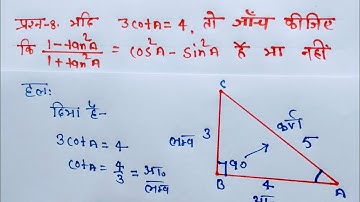 प्रश्न-8. यदि 3cotA=4, तो जाँच कीजिए
कि (1-tan²A)/(1+tan²A) = cos²A - sin²A है या नहीं
हल:
दिया है-
3cotA = 4
cotA = 4/3 = आ०/लम्ब
C
लम्ब 3
कर्ण
5
90
B
4
A
आ०